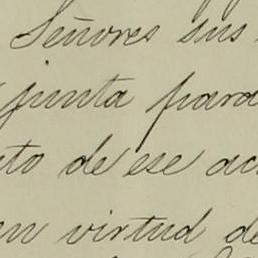 Señores sus
junta para
to de ese ac
en virtud de